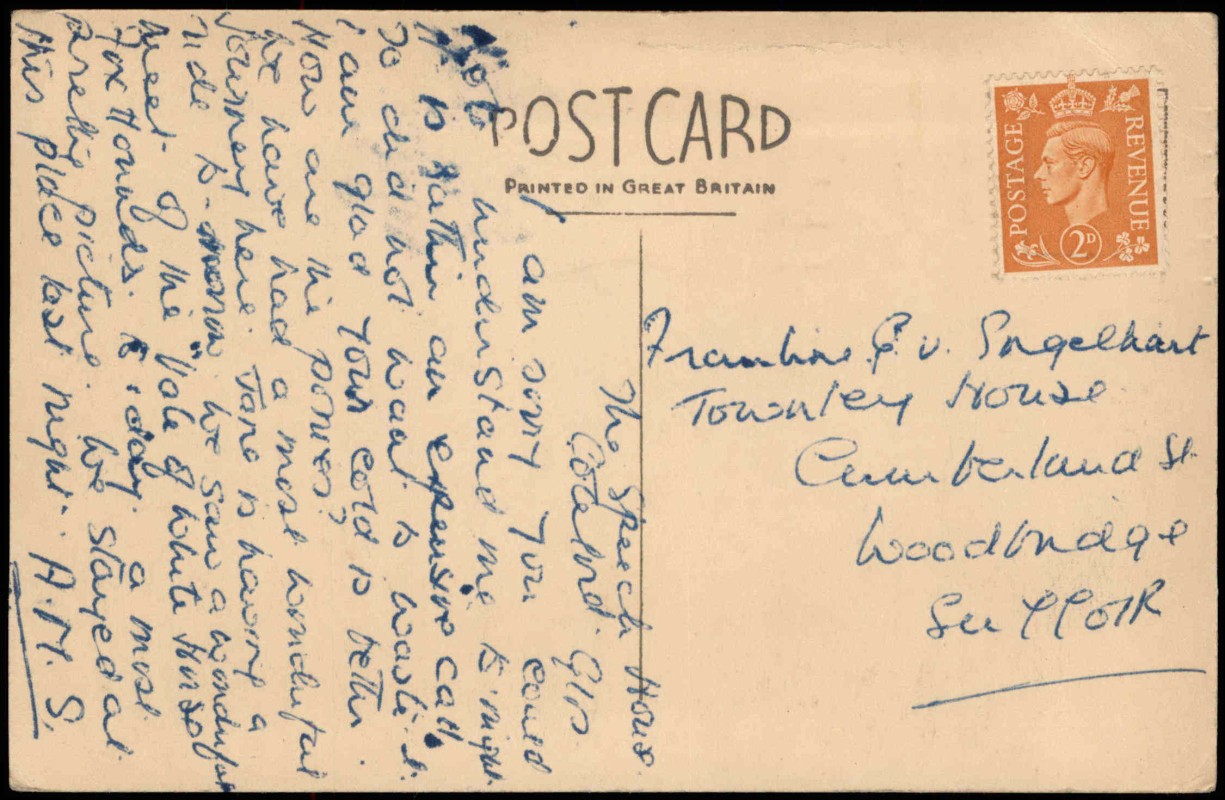 POSTCARD
PRINTED IN GREAT BRITAIN
POSTAGE
REVENUE
2D
The Speech House
Coleford. Glos
I am sorry you could
not understand me to night
It is rather an expensive call
So did not want to waste it.
I am glad your cold is better
How are the ponies?
We have had a most wonderful
journey here. Jane is having a
ride to-morrow. We saw a wonderful
meet of the "Vale of White Horse"
Fox Hounds. to-day a most
pretty picture. We stayed at
this place last night. A.M.S.
E. v. Engelhart
Townley House
Cumberland St.
Woodbridge
Suffolk